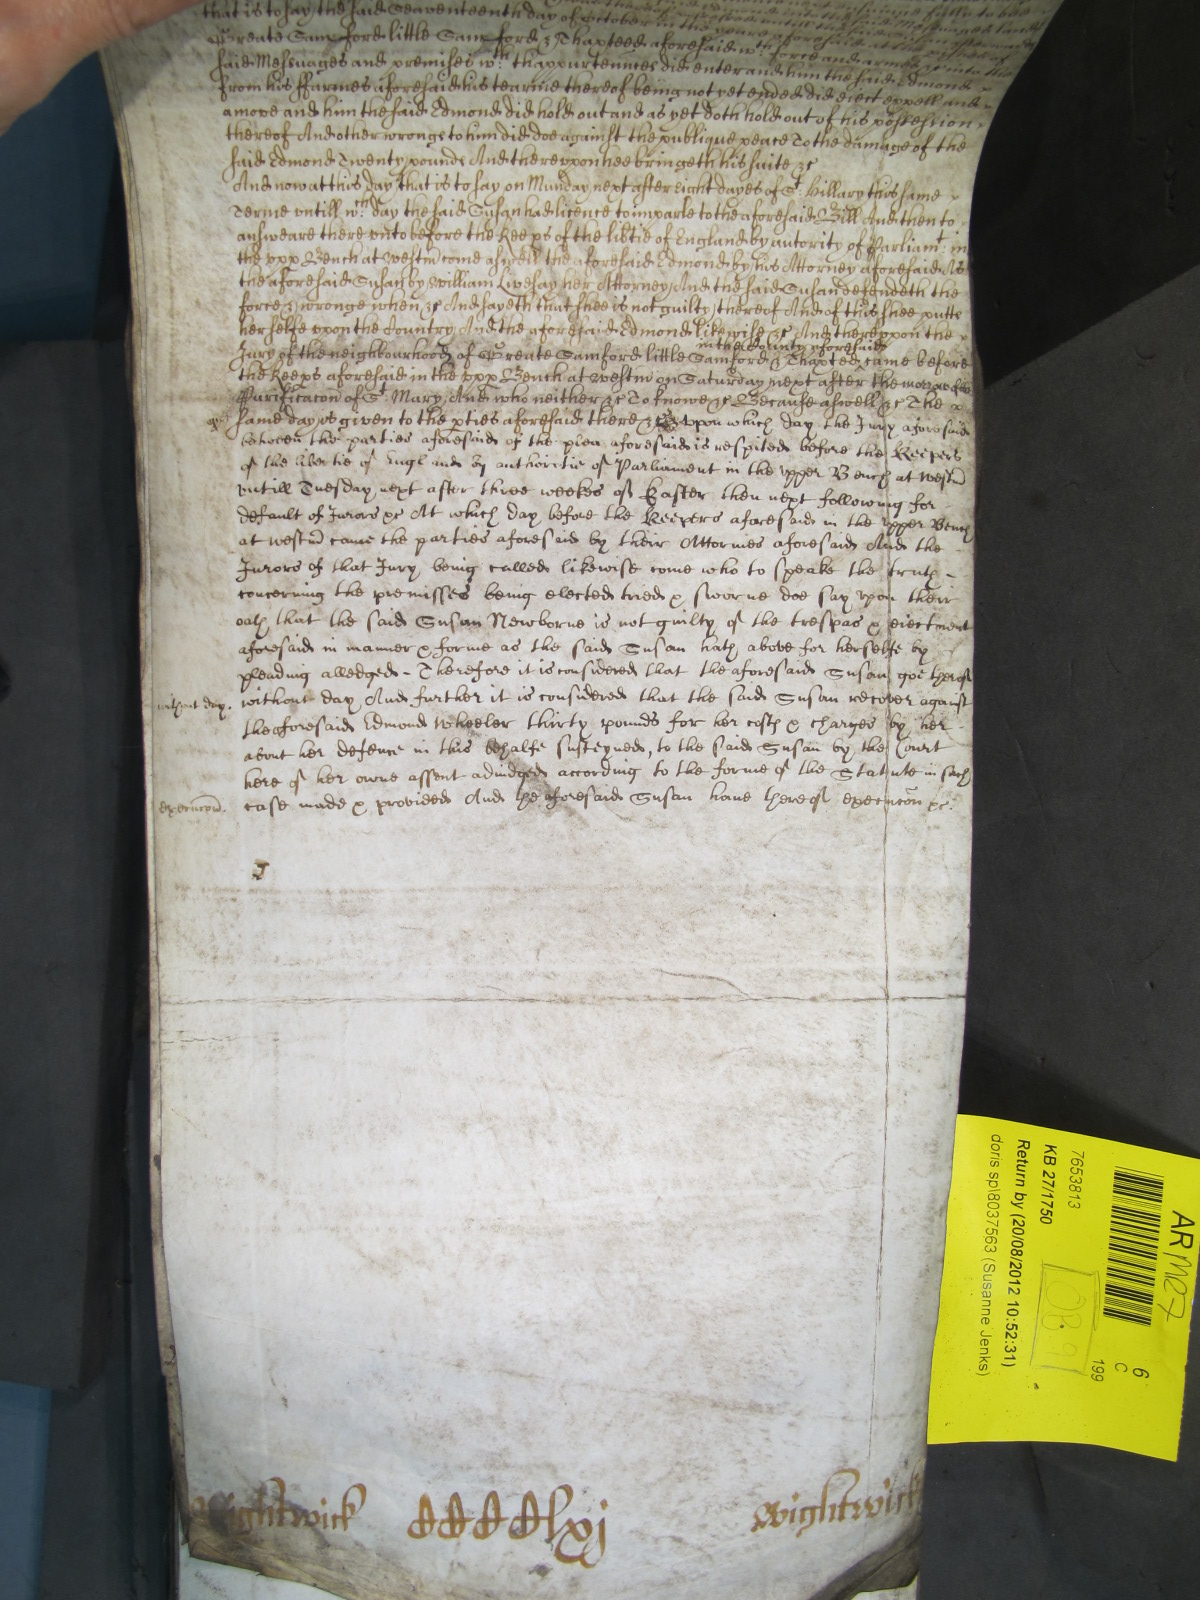 that is to say the said Seaventeenth day of October in the
Greate Samford little Samford & Thaxteed aforesaid wth force and armes &c into the
said Messuages and premises wth thappurtennces did enter and him the said Edmond
from his ffarmes aforesaid his tearme thereof beeing not yet ended did eiect expell and
amove and him the said Edmond did hold out and as yet doth hold out of his possession
thereof And other wronge to him did doe against the publique peace To the damage of the
said Edmond Twenty pounds And thereupon hee bringeth his suite &c
And now at this day that is to say on Munday next after eight dayes of St. Hillary this same
Terme untill wch day the said Susan had licence to imparle to the aforesaid Bill And then to
answeare there unto before the Keeps of the libtie of England by autority of Parliamt. in
the upp Bench at Westm come aswell the aforesaid Edmond by his Attorney aforesaid As
the aforesaid Susan by William Livesay her Attorney And the said Susan defendeth the
force & wronge when &c And sayeth that shee is not guilty thereof And of this shee putts
herselfe upon the Country And the aforesaid Edmond likewise &c And thereupon the
in the County aforesaid
Jury of the neighbourhood of Greate Samford little Samford & Thaxteed came before
the Keeps aforesaid in the upp Bench at Westm on Saturday next after the morrow of the
Purificacon of St. Mary And who neither &c To knowe &c Because aswell &c The
same day is given to the pties aforesaid there &c Upon which day the Jury aforesaid
betweene the parties aforesaid of the plea aforesaid is respited before the Keepers
of the libertie of England by authoritie of Parliament in the upper Bench at Westm
untill Tuesday next after three weekes of Easter then next following for
default of Jurors &c At which day before the Keepers aforesaid in the upper Bench
at Westm came the parties aforesaid by their Attornies aforesaid And the
Jurors of that Jury being called likewise come who to speake the truth
concerning the premisses being elected tried & sworne doe say upon their
oath that the said Susan Newborne is not guilty of the trespas & eiectment
aforesaid in manner & forme as the said Susan hath above for herselfe by
pleading alledged - Therefore it is considered that the aforesaid Susan goe thereof
without day.
without day And further it is considered that the said Susan recover against
the aforesaid Edmond Wheeler thirty pounds for her costs & charges by her
about her defence in this behalfe susteyned, to the said Susan by the Court
here of her owne assent adiudged according to the forme of the Statute in such
execucon.
case made & provided And the aforesaid Susan have thereof execucon &c.
Wightwick
CCCClxj
Wightwick
AR
6
C
199
7653813
KB 27/1750
Return by (20/08/2012 10:52:31)
doris sp\8037563 (Susanne Jenks)